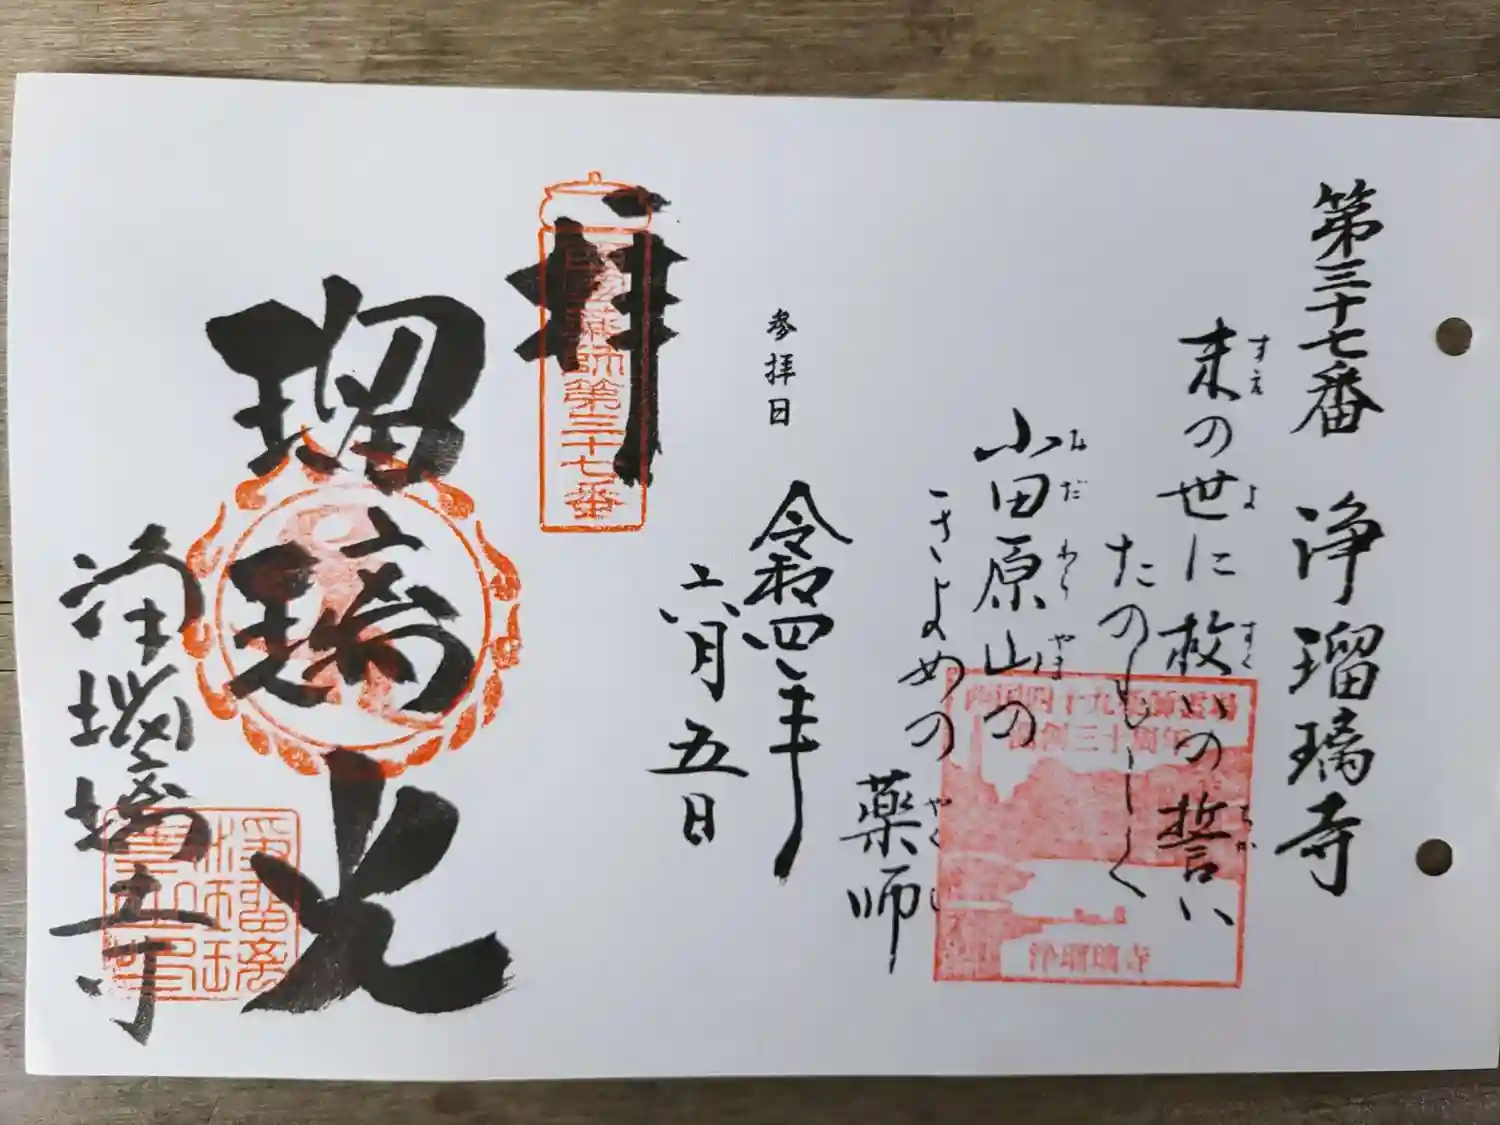 第三十七番 浄瑠璃寺
末の世に救いの誓い
すえ よ すく ちか
たのもしく
小田原山の
をだわらやま
きよめの
薬師
やくし
西国四十九薬師霊場
開創三十周年
浄瑠璃寺
参拝日
令和四年
六月五日
拝
西国薬師第三十七番
瑠璃光
浄瑠璃寺